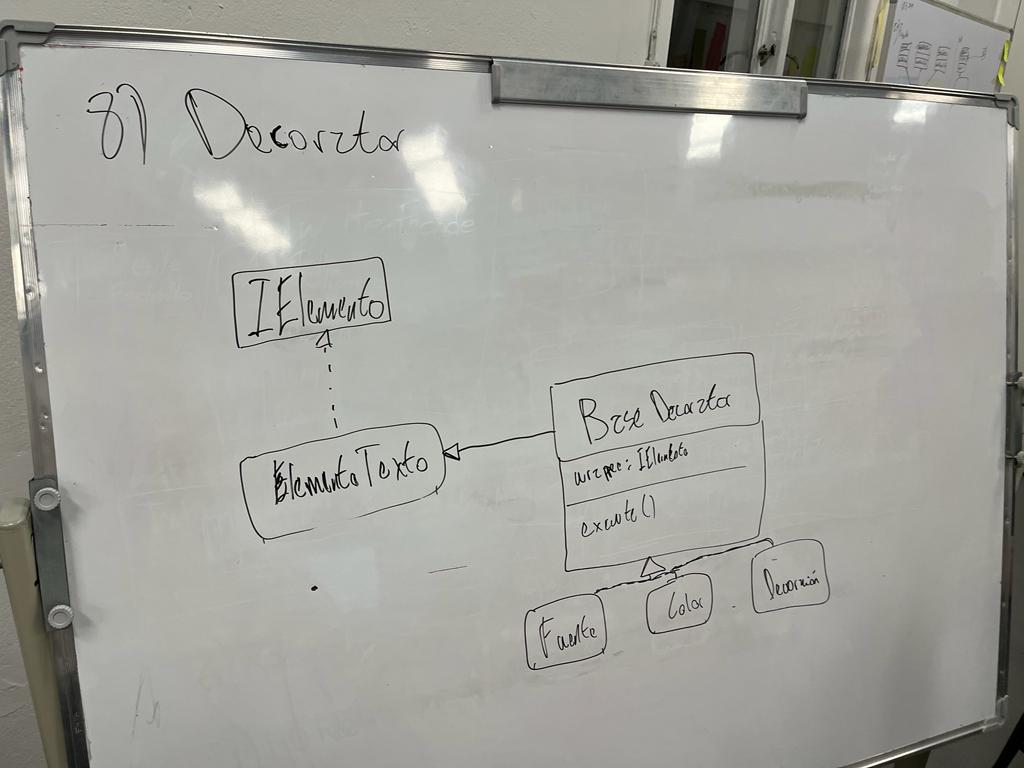 8) Decorator
IElemento
ElementoTexto
Base Decorator
wrapee: IElemento
execute()
Fuente
Color
Decoración